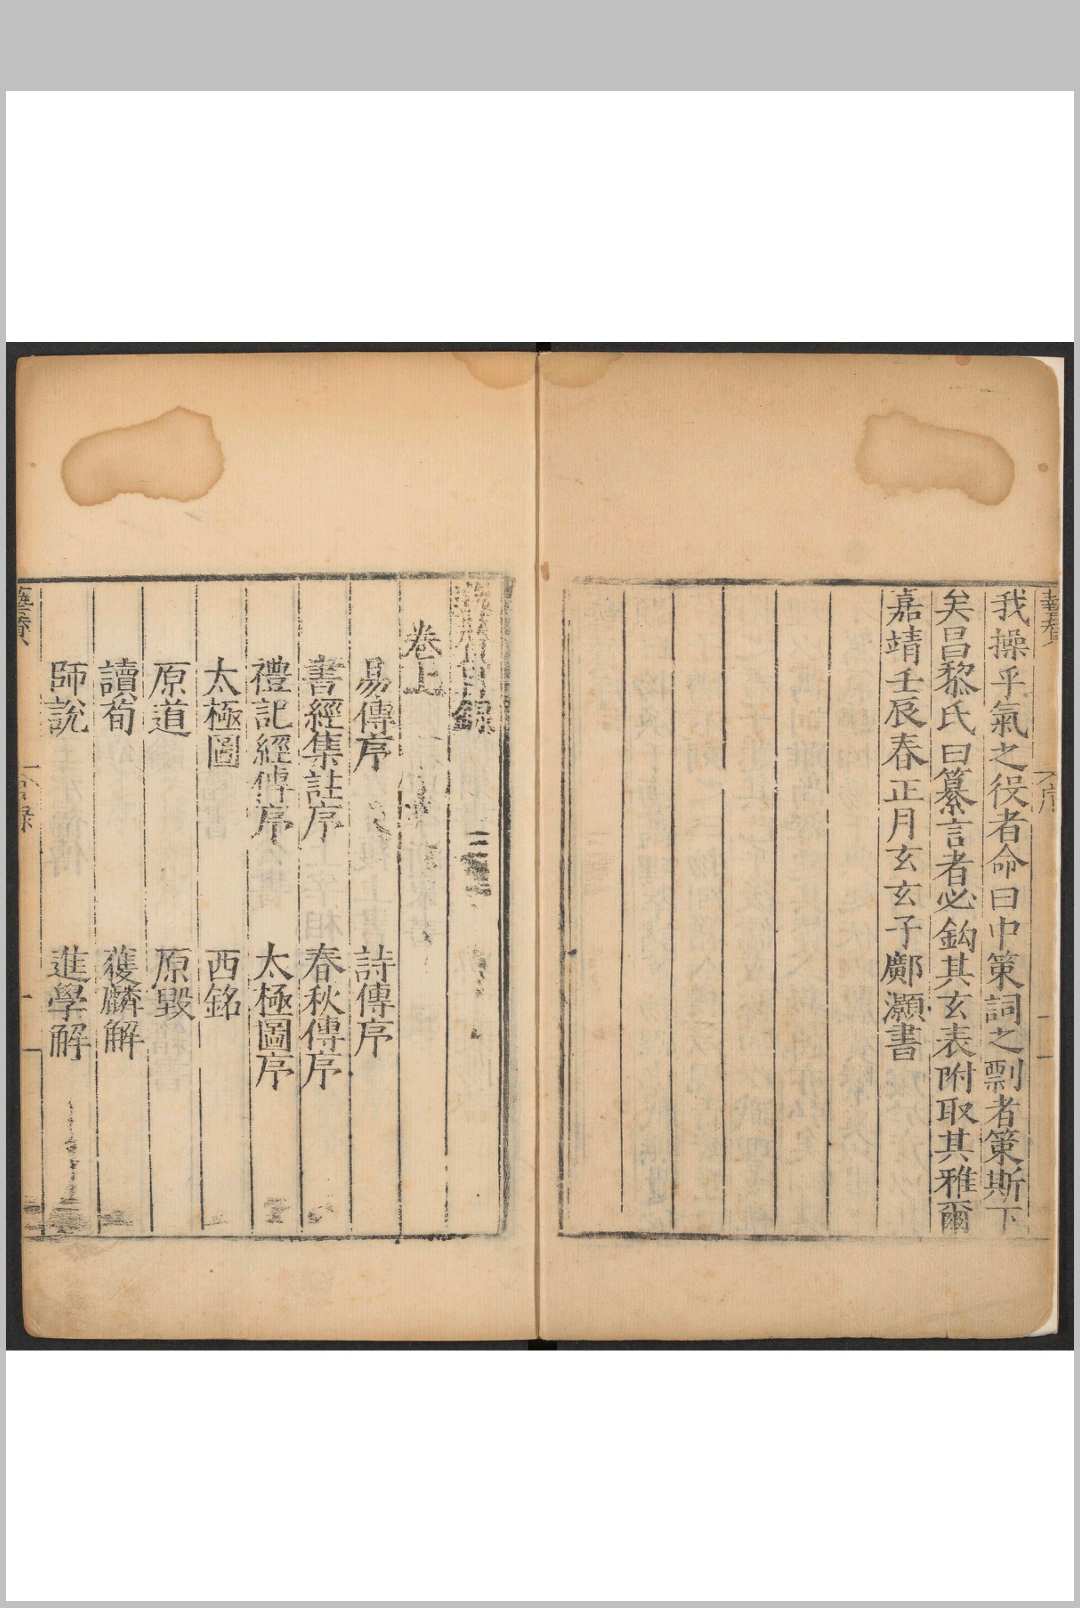 我操乎氣之役者命曰中策詞之剽者策斯下
矣昌黎氏曰纂言者必鈎其玄表附取其雅爾
嘉靖壬辰春正月玄玄子鄺灝書
目錄
卷上
易傳序 詩傳序
書經集註序 春秋傳序
禮記經傳序 太極圖序
太極圖 西銘
原道 原毀
讀荀 獲麟解
師說 進學解